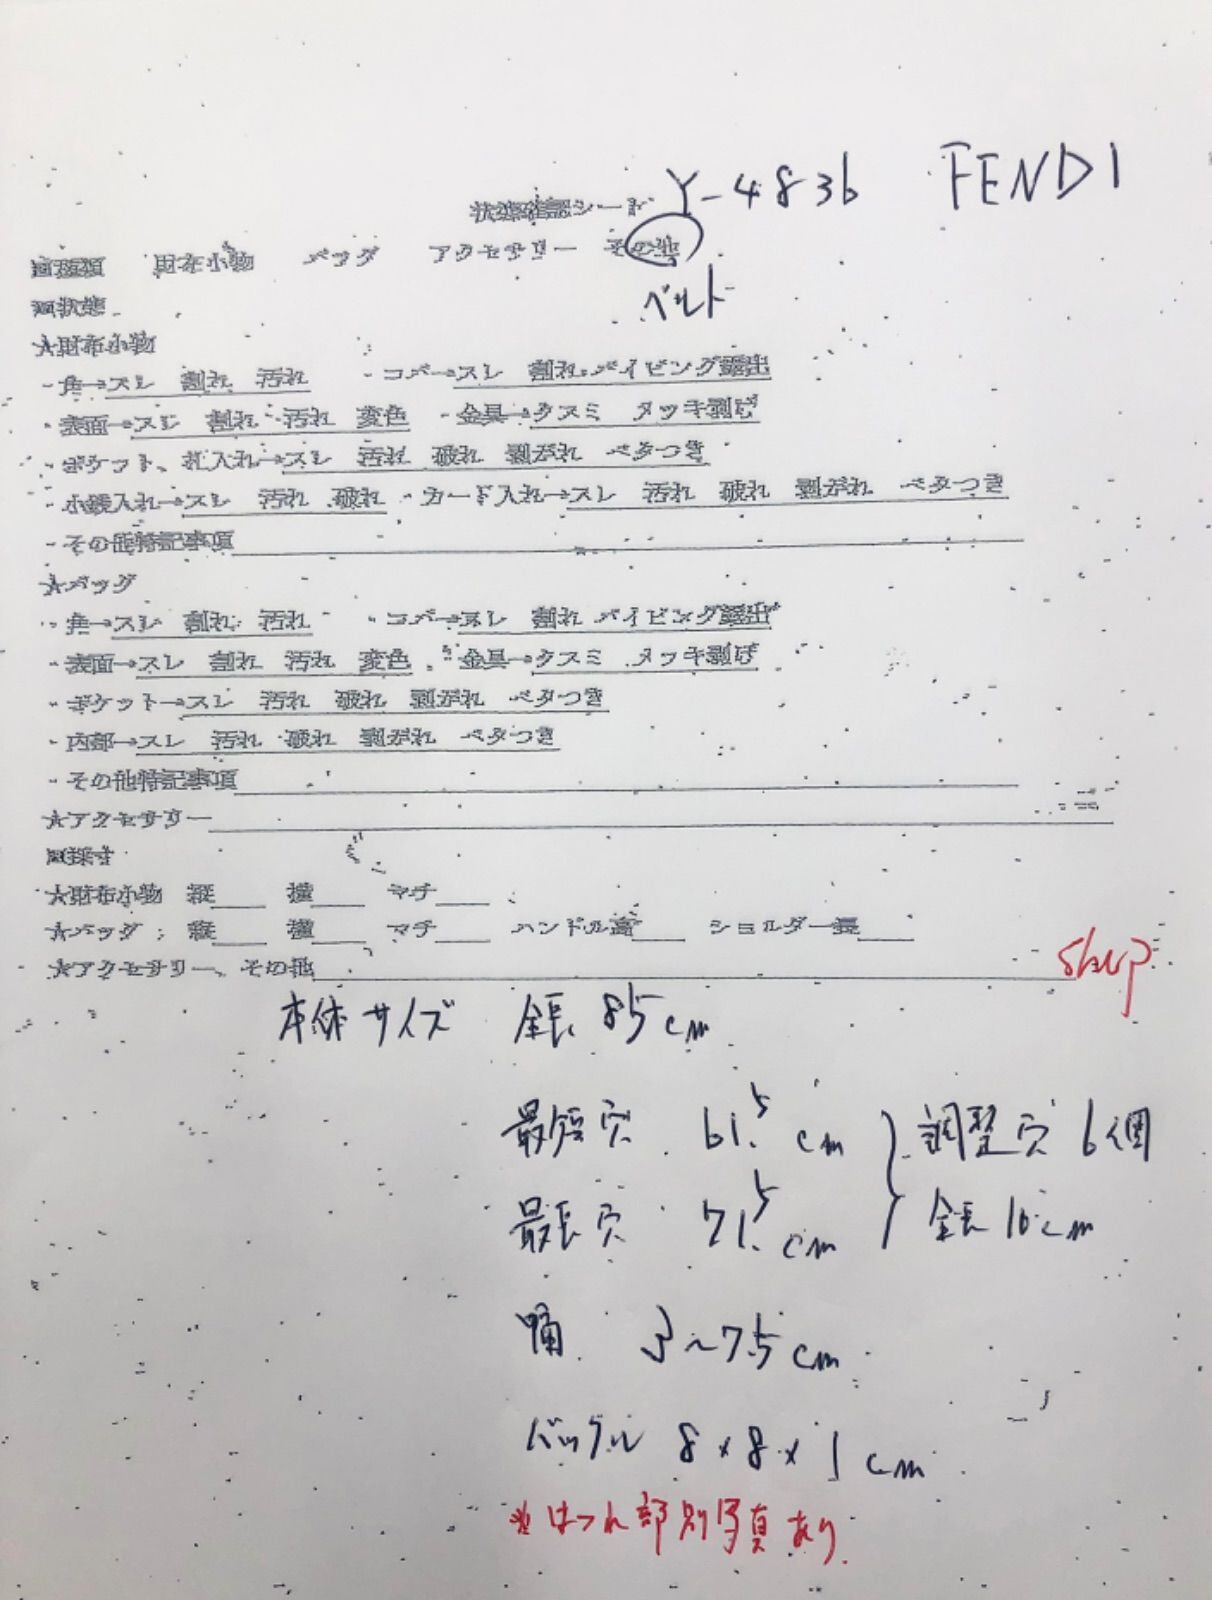 状態確認シート Y-4836 FENDI
回種類 財布小物 バッグ アクセサリー その他
ベルト
回状態
★財布小物
・角→スレ 割れ 汚れ ・コバ→スレ 割れ パイピング露出
・表面→スレ 割れ 汚れ 変色 ・金具→クスミ メッキ剥げ
・ポケット、札入れ→スレ 汚れ 破れ 剥がれ ベタつき
・小銭入れ→スレ 汚れ 破れ ・カード入れ→スレ 汚れ 破れ 剥がれ ベタつき
・その他特記事項
★バッグ
・角→スレ 割れ 汚れ ・コバ→スレ 割れ パイピング露出
・表面→スレ 割れ 汚れ 変色 ・金具→クスミ メッキ剥げ
・ポケット→スレ 汚れ 破れ 剥がれ ベタつき
・内部→スレ 汚れ 破れ 剥がれ ベタつき
・その他特記事項
★アクセサリー
回採寸
★財布小物 縦 横 マチ
★バッグ 縦 横 マチ ハンドル高 ショルダー長
★アクセサリー、その他
本体サイズ 全長 85cm
最短穴 61.5cm } 調整穴 6個
最長穴 71.5cm 全長 10cm
幅 3~7.5cm
バックル 8×8×1cm
※ほつれ部別写真あり